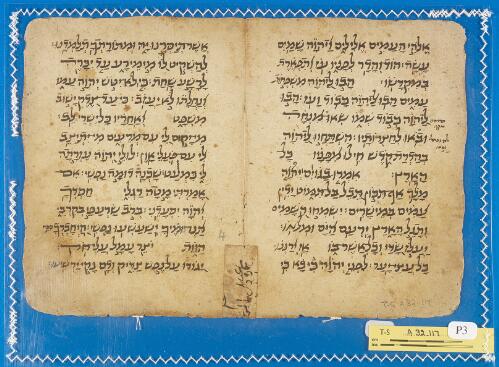 אלהי העמים אלילים ויהוה שמים
עשה הוד והדר לפניו עז ותפארת
במקדשו הבו ליהוה משפחות
עמים הבו ליהוה כבוד ועז הבו
ליהוה כבוד שמו שאו מנחה
ובאו לחצרותיו השתחוו ליהוה
בהדרת קדש חילו מפניו כל
הארץ אמרו בגוים יהוה
מלך אף תכון תבל בל תמוט ידין
עמים במישרים ישמחו השמים
ותגל הארץ ירעם הים ומלאו
יעלז שדי וכל אשר בו אז ירננו
כל עצי יער לפני יהוה כי בא כי
אשר תיסרנו יה ומתורתך תלמדנו
להשקיט לו מימי רע עד יכרה
לרשע שחת כי לא יטש יהוה עמו
ונחלתו לא יעזב כי עד צדק ישוב
משפט ואחריו כל ישרי לב
מי יקום לי עם מרעים מי יתיצב
לי עם פעלי און לולי יהוה עזרתה
לי כמעט שכנה דומה נפשי אם
אמרתי מטה רגלי חסדך
יהוה יסעדני ברב שרעפי בקרבי
תנחומיך ישעשעו נפשי היחברך
הוות יצר עמל עלי חק
יגודו על נפש צדיק ודם נקי ירשיעו
4
T-S A32.117
T-S A 32.117 P3